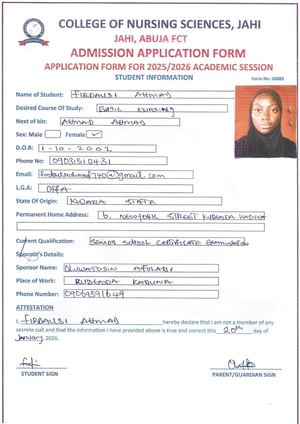 COLLEGE OF NURSING SCIENCES, JAHI
JAHI, ABUJA FCT
ADMISSION APPLICATION FORM
APPLICATION FORM FOR 2025/2026 ACADEMIC SESSION
STUDENT INFORMATION
Form No: 00889
Name of Student: FIRDAUSI AHMAD
Desired Course Of Study: BASIC NURSING
Next of kin: AHMAD AHMAD
Sex: Male Female ✓
D.O.B: 1-10-2002
Phone No: 09031510431
Email: @gmail.com
L.G.A: OFFA
State Of Origin: KWARA STATE
Permanent Home Address: 6, STREET KADUNA
Current Qualification: SENIOR SCHOOL CERTIFICATE EXAMINATION
Sponsor's Details:
Sponsor Name: OLUWATOSIN AFOLABI
Place of Work: KADUNA
Phone Number: 09069591649
ATTESTATION
I, FIRDAUSI AHMAD hereby declare that I am not a member of any
secret cult and that the information I have provided above is true and correct this 20th day of
January, 2026.
STUDENT SIGN PARENT/GUARDIAN SIGN